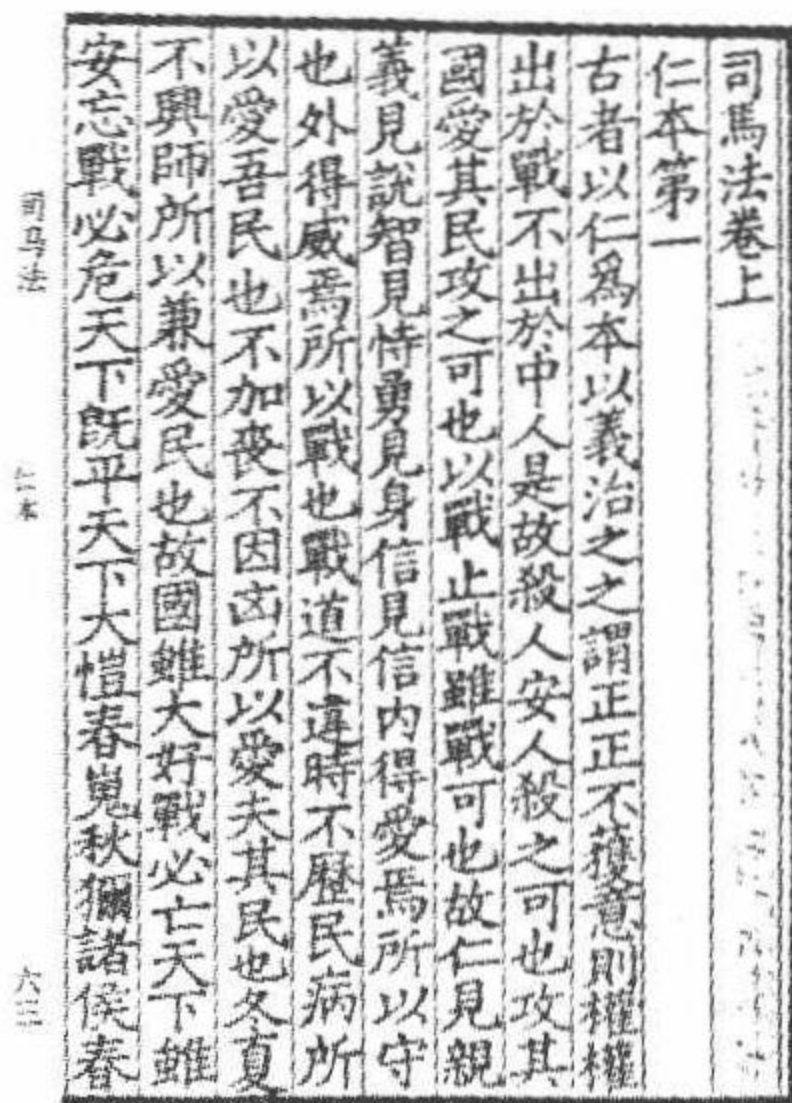 司馬法卷上
仁本第一
古者以仁爲本以義治之之謂正正不獲意則權權
出於戰不出於中人是故殺人安人殺之可也攻其
國愛其民攻之可也以戰止戰雖戰可也故仁見親
義見說智見恃勇見身信見信內得愛焉所以守
也外得威焉所以戰也戰道不違時不歷民病所
以愛吾民也不加喪不因凶所以愛夫其民也冬夏
不興師所以兼愛民也故國雖大好戰必亡天下雖
安忘戰必危天下既平天下大愷春蒐秋獮諸侯春
司马法
仁本
六三